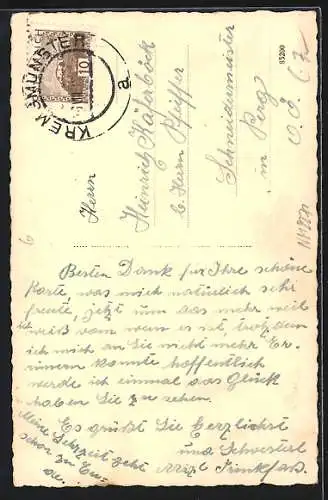 KREMSMÜNSTER
a
10
85200
Herrn
Heinrich Käferböck
b. Herrn Pfeiffer
Schneidermeister
in Perg
O. Ö.
6
Besten Dank für Ihre schöne
Karte, was mich natürlich sehr
freute, jetzt um das mehr weil
ich weiß von wem es ist, trotzdem
ich mich an Sie nicht mehr Er-
innern konnte hoffentlich
werde ich einmal das Glück
haben Sie zu sehen.
Es grüßt Sie Herzlichst
und Schwesterl
Meine Lehrzeit geht
schon zu En-
de.